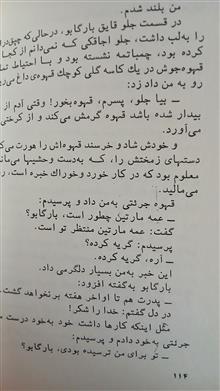 من بلند شدم.
در قسمت جلو قایق بارگابو، درحالی‌که چپق‌
را به‌لب داشت، جلو اجاقکی که نمی‌دانم از کجا
کرده بود، چمباتمه نشسته بود و با احتیاط تما
قهوه‌جوش در یك کاسه گلی کوچك قهوه‌ی داغ می‌ری
رو به من داد زد:
ــ بیا جلو، پسرم، قهوه‌بخور! وقتی آدم از
بیدار شده باشد قهوه گرمش می‌کند و از کرختی
می‌آورد.
و خودش شاد و خرسند قهوه‌اش را هورت می‌ک
دستهای زمختش را، که به‌دست وحشیها می‌ماند
معلوم بود که در کار خورد و خوراك خبره است، به
می‌مالید.
قهوه جرئتی به‌من داد و پرسیدم:
ــ عمه مارتین چطور است، بارگابو؟
گفت: عمه مارتین منتظر تو است.
پرسیدم: گریه کرده؟
ــ آره، گریه کرده.
این خبر به‌من بسیار دلگرمی داد.
بارگابو به‌گفته افزود:
ــ پدرت هم تا اواخر هفته برنخواهد گشت.
در دل گفتم: خدا را شکر!
مثل اینکه کارها داشت خود به‌خود درست م
جرئتی به‌خود دادم و پرسیدم:
ــ تو برای من ترسیده بودی، بارگابو؟
۱۱۴